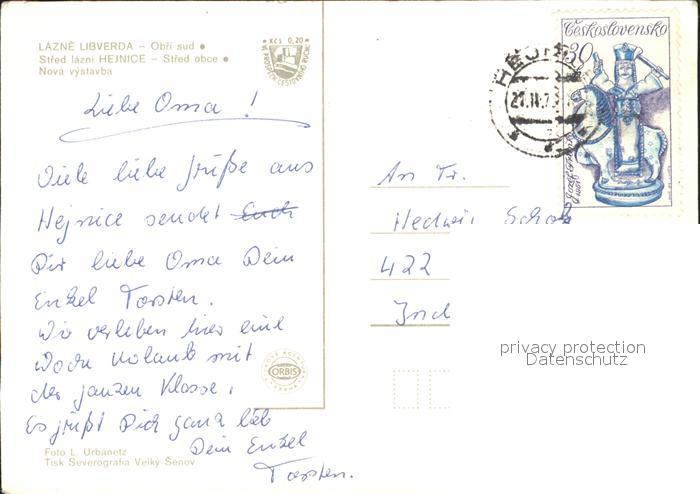 LÁZNĚ LIBVERDA – Obří sud ●
Střed lázní HEJNICE – Střed obce ●
Nová výstavba
Kčs 0,20
Liebe Oma !
Viele liebe Grüße aus
Hejnice sendet Euch
Dir liebe Oma Dein
Enkel Torsten.
Wir verleben hier eine
Woche Urlaub mit
der ganzen Klasse.
Es grüßt Dich ganz lieb
Dein Enkel
Torsten.
Foto L. Urbanetz
Tisk Severografia Velký Šenov
ORBIS
Československo
30
An Fr.
Hedwig Scholz
422
privacy protection
Datenschutz